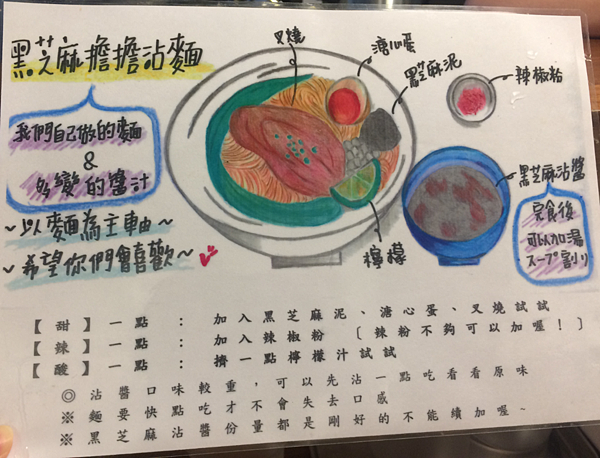 黑芝麻擔擔沾麵
叉燒
溏心蛋
黑芝麻泥
辣椒粉
我們自己做的麵
&
多變的醬汁
~以麵為主軸~
~希望你們會喜歡~
檸檬
黑芝麻沾醬
完食後
可以加湯
スープ割り
【甜】一點：加入黑芝麻泥、溏心蛋、叉燒試試
【辣】一點：加入辣椒粉〔辣粉不夠可以加喔！〕
【酸】一點：擠一點檸檬汁試試
◎沾醬口味較重，可以先沾一點吃看看原味
※麵要快點吃才不會失去口感
※黑芝麻沾醬份量都是剛好的不能續加喔~